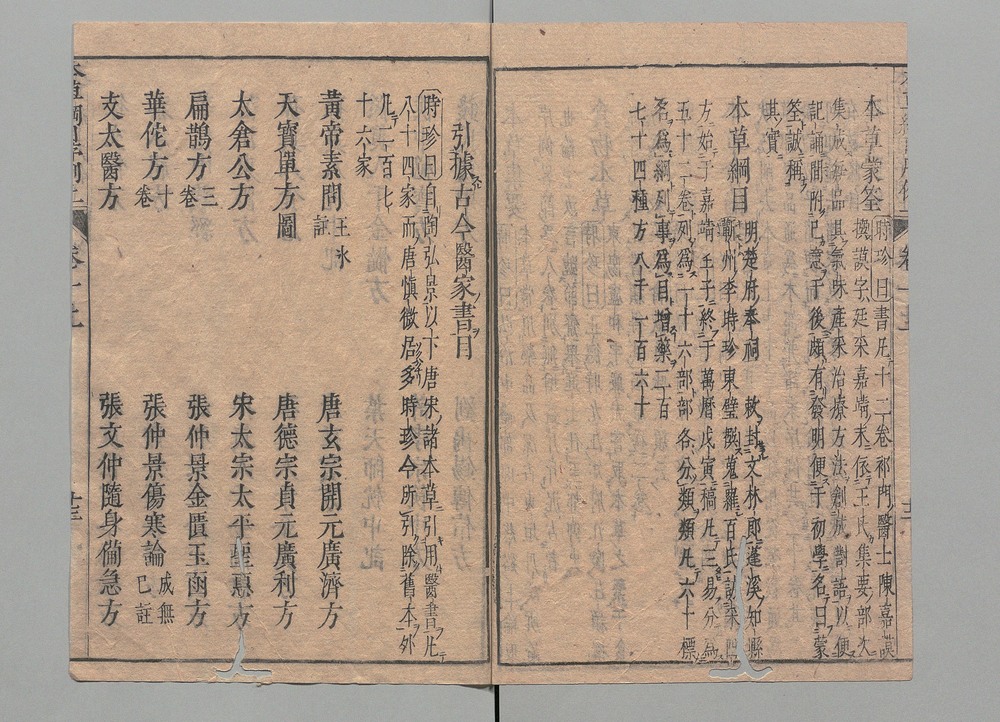 本草蒙筌 時珍曰書凡十二卷祁門醫士陳嘉謨
撰謨字廷采嘉靖末依王氏集要部次
集成每品具氣味產采治療方法創成對語以便
記誦間附己意于後頗有發明便于初學名曰蒙
筌誠稱
其實
本草綱目 明楚府奉祠 敕封文林郎蓬溪知縣
蘄州李時珍東璧撰蒐羅百氏訪采四
方始于嘉靖壬子終于萬曆戊寅稿凡三易分為
五十二卷列為一十六部部各分類類凡六十標
名為綱列事為目增藥三百
七十四種方八千一百六十
引據古今醫家書目
時珍曰自陶弘景以下唐宋諸本草引用醫書凡
八十四家而唐慎微居多時珍今所引除舊本外
凡二百七
十六家
黃帝素問 王冰註 唐玄宗開元廣濟方
天寶單方圖 唐德宗貞元廣利方
太倉公方 宋太宗太平聖惠方
扁鵲方三卷 張仲景金匱玉函方
華佗方十卷 張仲景傷寒論 成無己註
支太醫方 張文仲隨身備急方